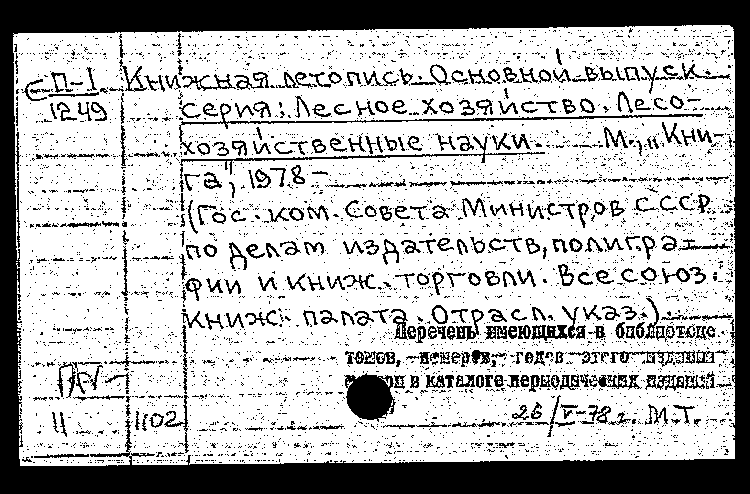 П-I Книжная летопись. Основной выпуск.
1249 серия: Лесное хозяйство. Лесо-
хозяйственные науки. М., „Кни-
га", 1978 –
(Гос. ком. Совета Министров СССР
по делам издательств, полигра-
фии и книж. торговли. Всесоюз.
книж. палата. Отрасл. указ.).
Перечень имеющихся в библиотеке
томов, номеров, годов этого издания
в каталоге периодических изданий
II 1102 26/V-78 г. М.Т.